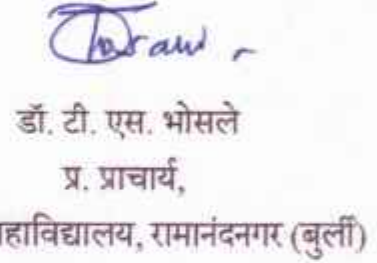 डॉ. टी. एस. भोसले
प्र. प्राचार्य,
हाविद्यालय, रामानंदनगर (बुर्ली)